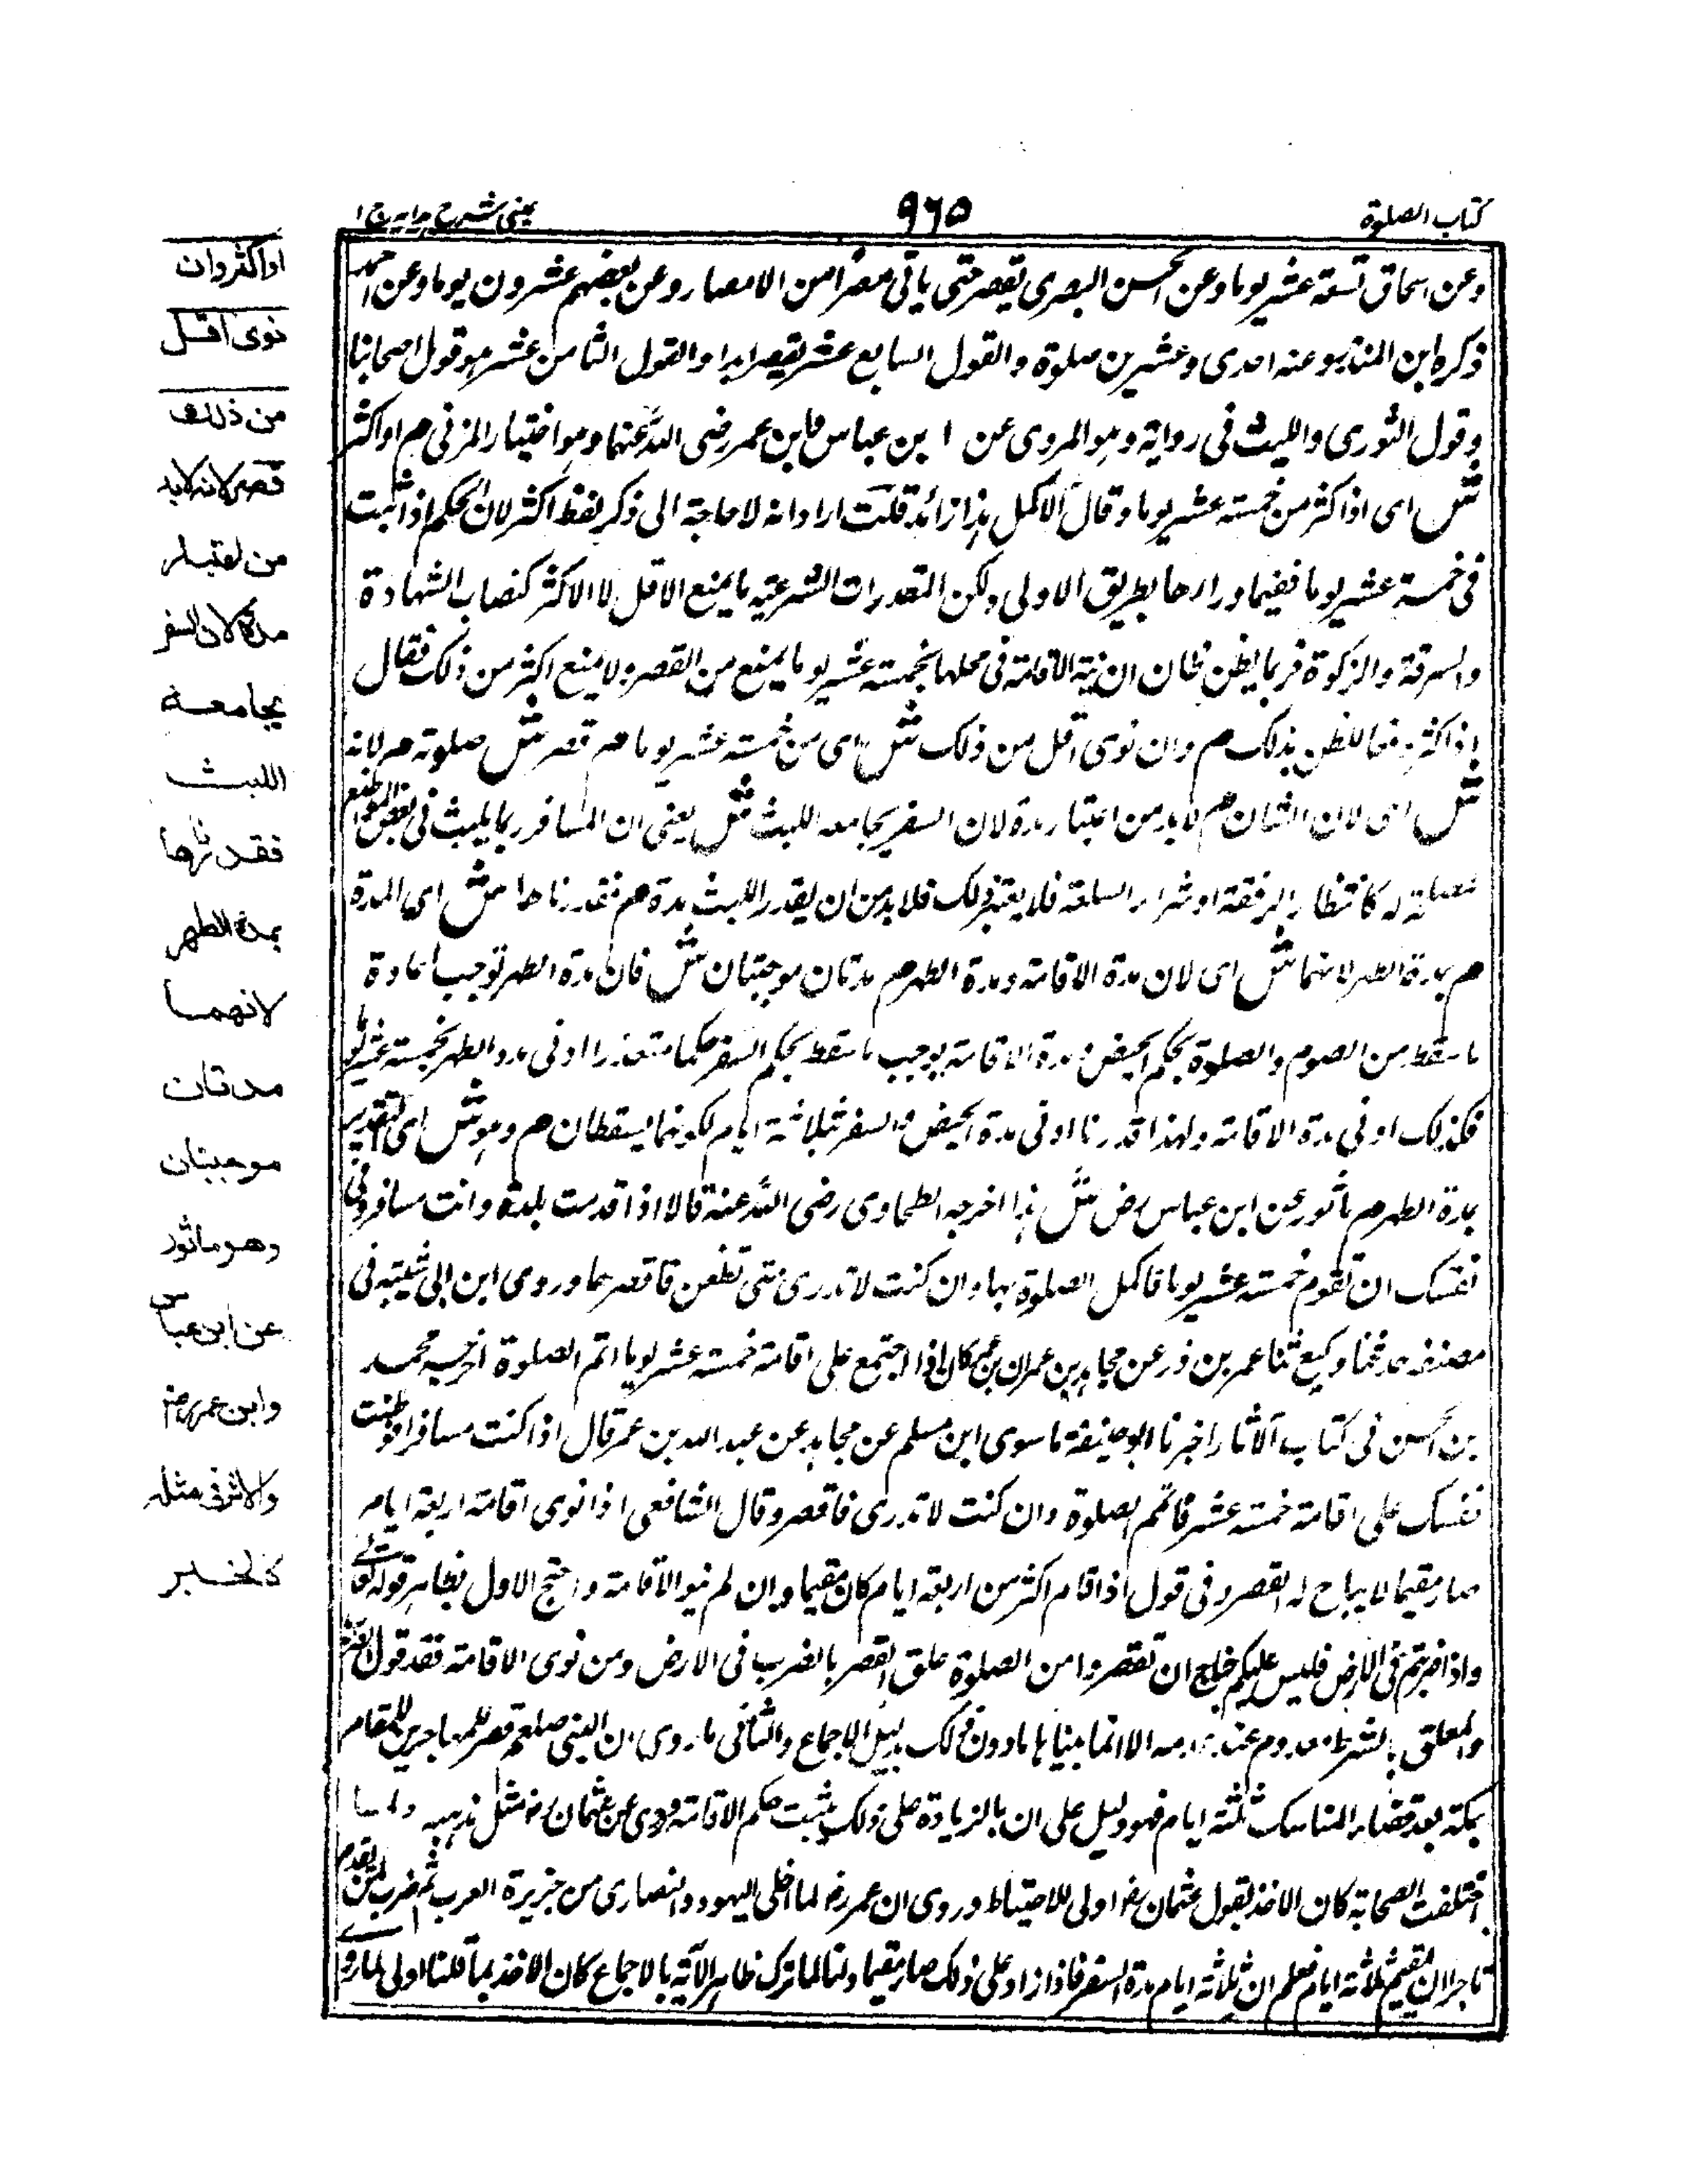 كتاب الصلوة
٩٦٥
عينى شرح هدايه ج ١
وعن اسحاق تسعة عشر يوما وعن الحسن البصرى يقصر حتى ياتى مصرا من الامصار وعن بعضهم عشرون يوما وعن احمد
ذكره ابن المنذر وعنه احدى وعشرين صلوة والقول السابع عشر يقصر ابدا والقول الثامن عشر هو قول اصحابنا
وقول الثورى والليث فى رواية وهو المروى عن ابن عباس وابن عمر رضى الله عنهما وهو اختيار المزنى م او اكثر
ش اى اذا كثر من خمسة عشر يوما وقال الاكمل هذا زائد قلت اراد انه لا حاجة الى ذكر لفظ اكثر لان الحكم اذا ثبت
فى خمسة عشر يوما ففيما وراءها بطريق الاولى ولكن التقديرات الشرعية ما يمنع الاقل لا الاكثر كنصاب الشهادة
والسرقة والزكوة فربما يظن ظان ان نية الاقامة فى محلها بخمسة عشر يوما يمنع من القصر ولا يمنع اكثر من ذلك فقال
او اكثر دفعا للظن بذلك م وان نوى اقل من ذلك ش اى من خمسة عشر يوما م قصر ش صلوته م لانه
ش اى لان الشان م لا بد من اعتبار مدة لان السفر يجامعه اللبث ش يعنى ان المسافر ربما يلبث فى بعض المواضع
لمصلحة له كانتظار الرفقة او شراء السلعة فلا يعتبر ذلك فلا بد من ان يقدر اللبث مدة م فقدرناها ش اى المدة
م بمدة الطهر لانهما ش اى لان مدة الاقامة ومدة الطهر م مدتان موجبتان ش فان مدة الطهر توجب اعادة
ما سقط من الصوم والصلوة بحكم الحيض ومدة الاقامة يوجب ما سقط بحكم السفر فكما يتقدر ادنى مدة الطهر بخمسة عشر يوما
فكذلك ادنى مدة الاقامة ولهذا قدرنا ادنى مدة الحيض والسفر بثلاثة ايام لكونهما يسقطان م وهو ش اى التقدير
بمدة الطهر م ماثور عن ابن عباس رض ش هذا اخرجه الطحاوى رضى الله عنه قالا اذا قدمت بلدة وانت مسافر وفى
نفسك ان تقوم خمسة عشر يوما فاكمل الصلوة بها وان كنت لا تدرى متى تظعن فاقصرها وروى ابن ابى شيبة فى
مصنفه حدثنا وكيع ثنا عمر بن ذر عن مجاهد بن عمر كان اذا اجتمع على اقامة خمسة عشر يوما اتم الصلوة اخرجه محمد
بن الحسن فى كتاب الآثار اخبرنا ابو حنيفة ما سوى ابن مسلم عن مجاهد عن عبد الله بن عمر قال اذا كنت مسافرا فوطنت
نفسك على اقامة خمسة عشر فاتمم الصلوة وان كنت لا تدرى فاقصر وقال الشافعى اذا نوى اقامة اربعة ايام
صار مقيما لا يباح له القصر وفى قول اذا قام اكثر من اربعة ايام كان مقيما وان لم ينو الاقامة واحتج الاول بظاهر قوله تعالى
واذا ضربتم فى الارض فليس عليكم جناح ان تقصروا من الصلوة علق القصر بالضرب فى الارض ومن نوى الاقامة فقد قول
والمعلق بالشرط معدوم عند عدمه الا انما بيناها مادون ذلك بدليل الاجماع والثانى ما روى ان النبى صلعم قصر للمهاجرين المقام
بمكة بعد قضاء المناسك ثلثة ايام فهو دليل على ان بالزيادة على ذلك يثبت حكم الاقامة وروى عن عثمان رض مثل مذهبه ولما
اختلفت الصحابة كان الاخذ بقول عثمان رض اولى للاحتياط وروى ان عمر رض لما اخلى اليهود والنصارى من جزيرة العرب ثم ضرب لمن يقدم
تاجرا ان يقيم ثلاثة ايام فعلم ان ثلاثة ايام مدة السفر فاذا زاد على ذلك صار مقيما ولنا لما ترك ظاهر الآية بالاجماع كان الاخذ بما قلنا اولى لما روا
او اكثر وان
نوى اقل
من ذلك
قصر لانه لا بد
من اعتبار
مدة لان السفر
يجامعه
اللبث
فقدرناها
بمدة الطهر
لانهما
مدتان
موجبتان
وهو ماثور
عن ابن عباس
وابن عمر رض
والاثر فى مثله
كالخبر